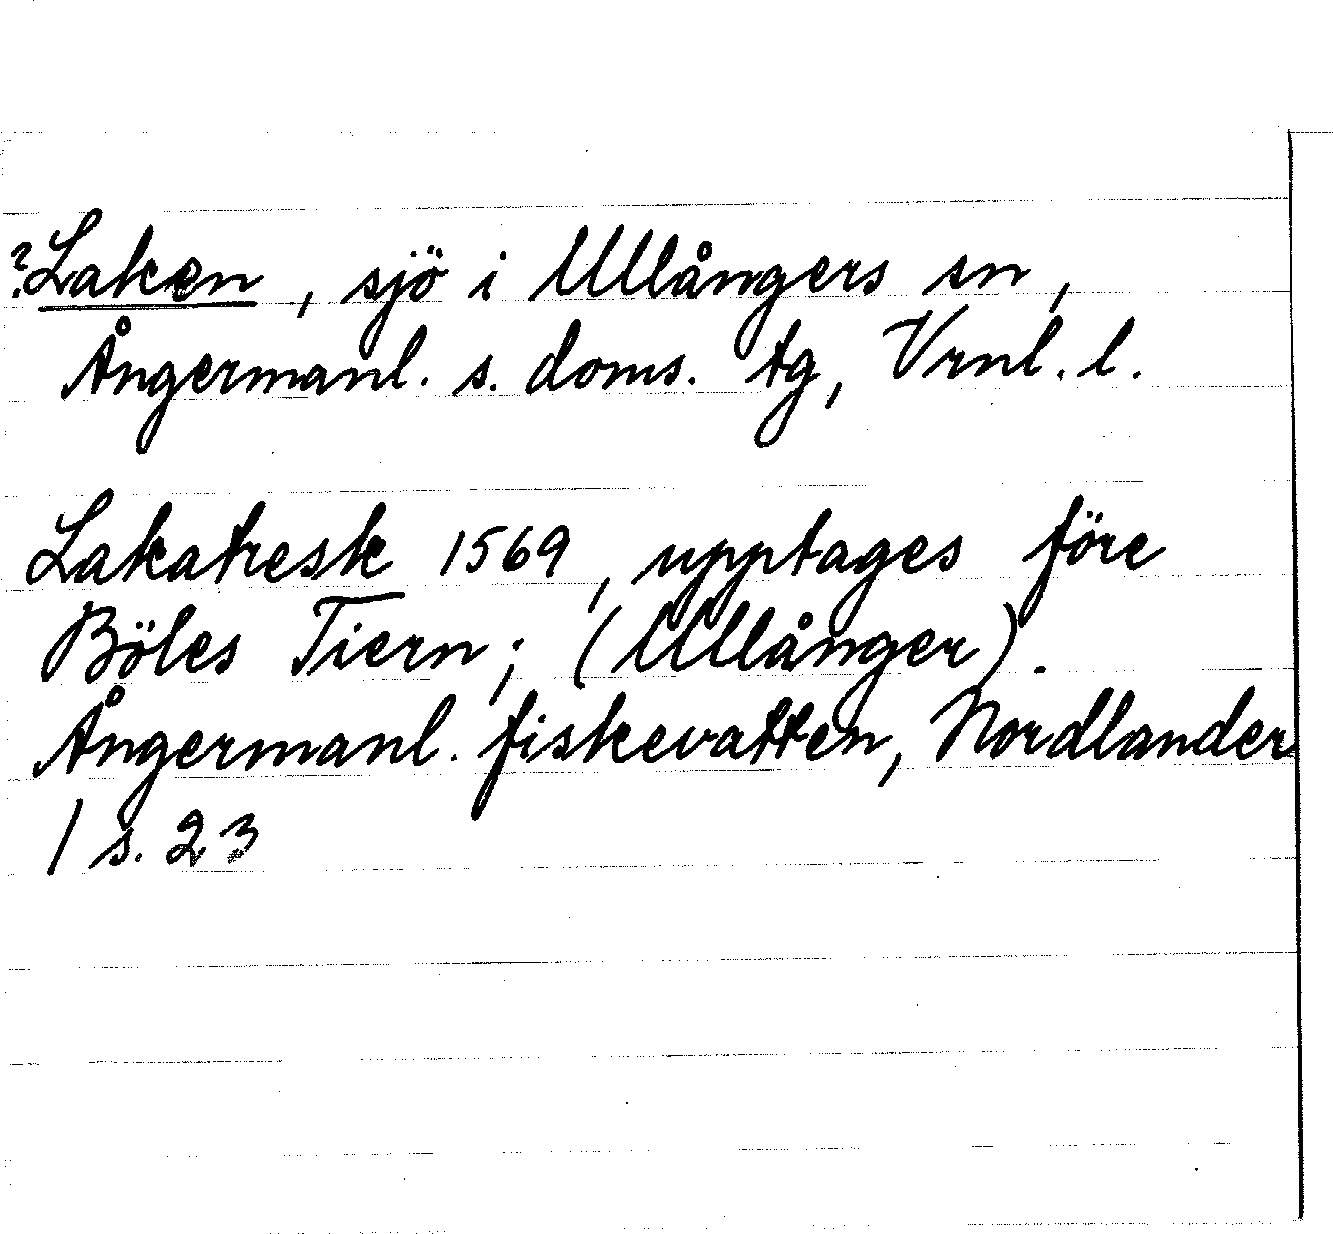 ?Laken, sjö i Ullångers sn,
Ångermanl. s. doms. tg, Vrnl. l.
Lakatresk 1569, upptages före
Böles Tiern; (Ullånger).
Ångermanl. fiskevatten, Nordlander
/ s. 23